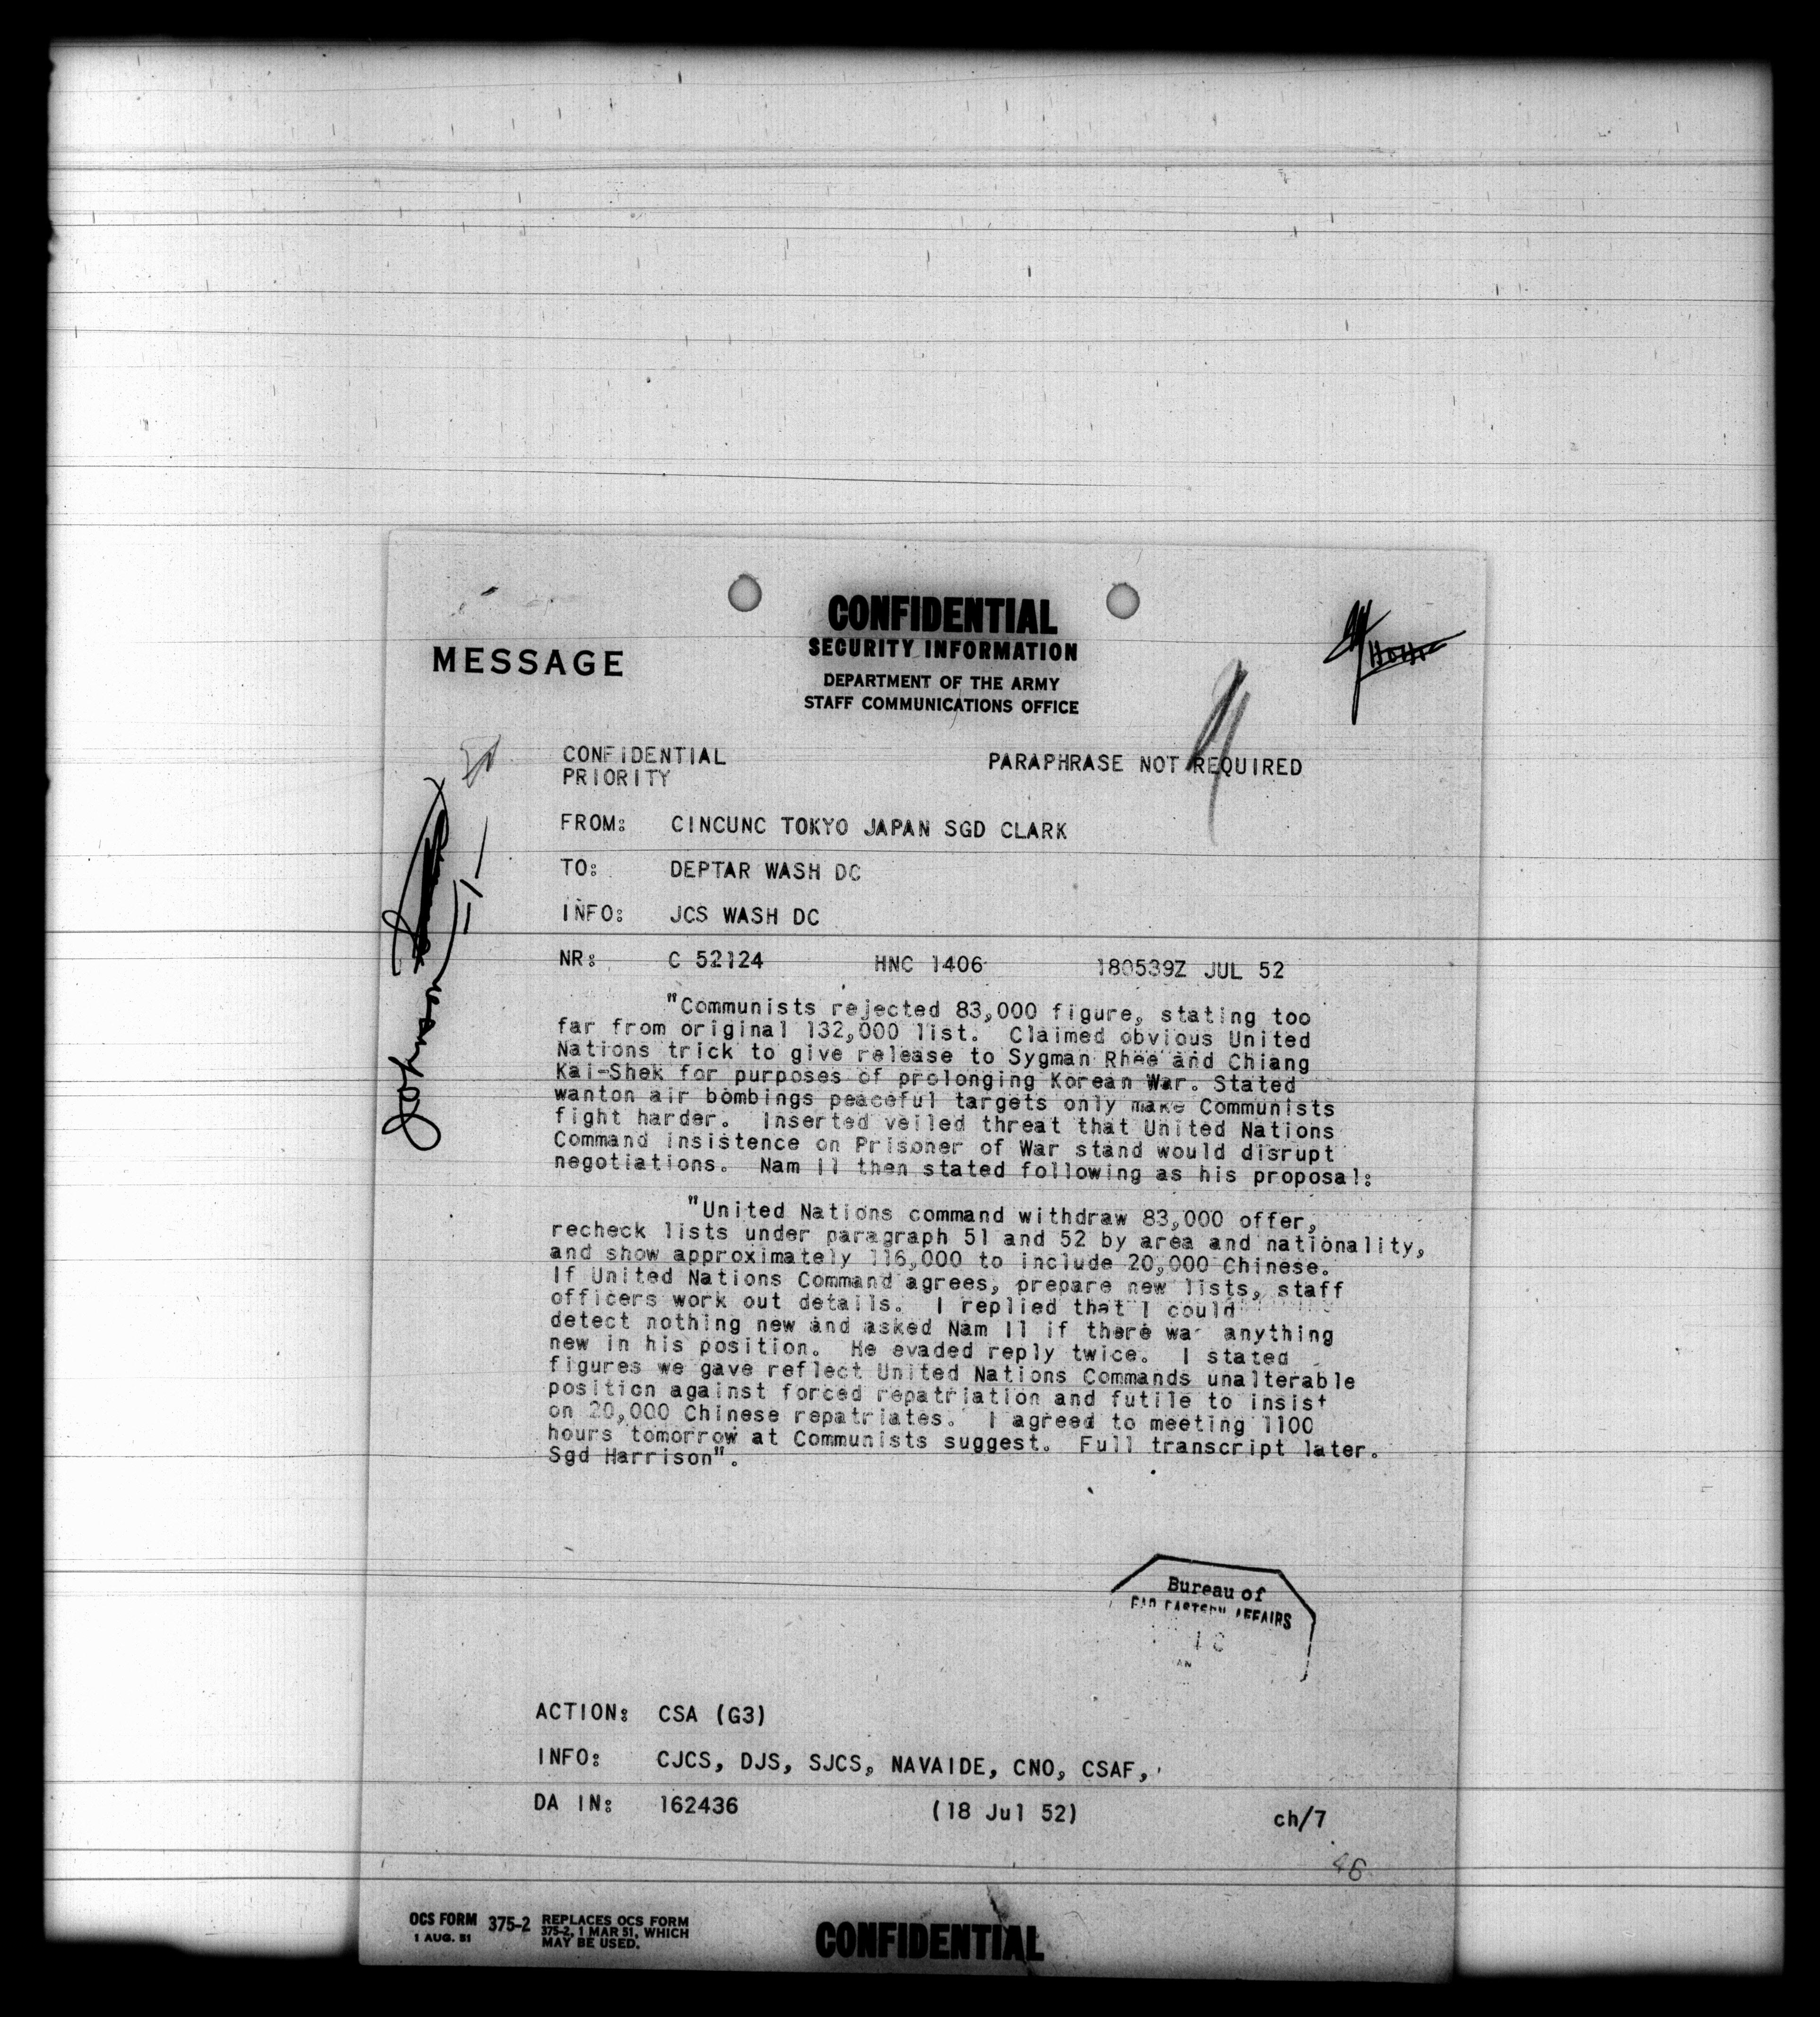 CONFIDENTIAL
SECURITY INFORMATION
MESSAGE
DEPARTMENT OF THE ARMY
STAFF COMMUNICATIONS OFFICE
CONFIDENTIAL PARAPHRASE NOT REQUIRED
PRIORITY
FROM: CINCUNC TOKYO JAPAN SGD CLARK
TO: DEPTAR WASH DC
INFO: JCS WASH DC
NR: C 52124 HNC 1406 180539Z JUL 52
"Communists rejected 83,000 figure, stating too
far from original 132,000 list. Claimed obvious United
Nations trick to give release to Sygman Rhee and Chiang
Kai-Shek for purposes of prolonging Korean War. Stated
wanton air bombings peaceful targets only make Communists
fight harder. Inserted veiled threat that United Nations
Command insistence on Prisoner of War stand would disrupt
negotiations. Nam Il then stated following as his proposal:
"United Nations command withdraw 83,000 offer,
recheck lists under paragraph 51 and 52 by area and nationality,
and show approximately 116,000 to include 20,000 Chinese.
If United Nations Command agrees, prepare new lists, staff
officers work out details. I replied that I could
detect nothing new and asked Nam Il if there wa anything
new in his position. He evaded reply twice. I stated
figures we gave reflect United Nations Commands unalterable
position against forced repatriation and futile to insist
on 20,000 Chinese repatriates. I agreed to meeting 1100
hours tomorrow at Communists suggest. Full transcript later.
Sgd Harrison".
Bureau of
FAR EASTERN AFFAIRS
ACTION: CSA (G3)
INFO: CJCS, DJS, SJCS, NAVAIDE, CNO, CSAF,
DA IN: 162436 (18 Jul 52) ch/7
46
OCS FORM 375-2 REPLACES OCS FORM
1 AUG. 51 375-2, 1 MAR 51, WHICH
MAY BE USED.
CONFIDENTIAL